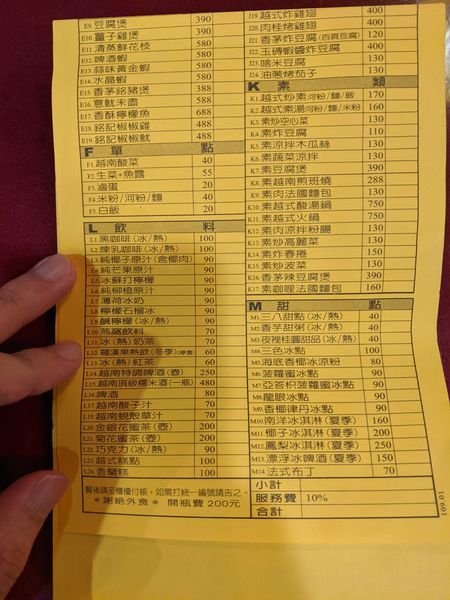 E9.豆腐煲 390
E10.薑子雞煲 400
E11.清蒸鮮花枝 580
E12.啤酒蝦 580
E13.蒜味黃金蝦 580
E14.水晶蝦 580
E15.香茅銘豬煲 388
E16.意魷未盡 588
E17.香酥檸檬魚 688
E18.銘記椒椒雞 488
E19.銘記椒椒魷 488
F 單點
F1.越南酸菜 40
F2.生菜+魚露 55
F3.滷蛋 20
F4.米粉/河粉/麵 40
F5.白飯 20
L 飲料
L1.黑咖啡(冰/熱) 100
L2.煉乳咖啡(冰/熱) 100
L3.純椰子原汁(含椰肉) 90
L4.純芒果原汁 90
L5.冰蘇打檸檬 90
L6.純柳橙原汁 90
L7.薄荷冰奶 90
L8.檸檬石榴冰 90
L9.鹹檸檬(冰/熱) 90
L10.燕窩飲料 70
L11.冰(熱)奶茶 70
L12.羅漢果熱飲(冬季) 60
L13.冰(熱)紅茶 60
L14.越南特調啤酒(壺) 250
L15.越南頂級糯米酒(一瓶) 480
L16.啤酒 80
L17.越南酸子汁 70
L18.越南蜆殼草汁 70
L20.金銀花蜜茶(壺) 200
L21.菊花蜜茶(壺) 200
L22.巧克力(冰/熱) 90
L23.越式糕點 100
L24.香蘭糕 100
餐後請至櫃檯付帳，如需打統一編號請告之。
*謝絕外食* 開瓶費 200元
J19.越式炸雞翅 400
J20.肉桂烤雞翅 400
J21.香茅炸豆腐(百頁豆腐) 120
J22.玉磚蝦醬炸豆腐 120
J23.啥米豆腐 130
J24.油蔥烤茄子 130
K 素類
K1.越式炒素河粉/麵/飯 170
K2.越式素湯河粉/麵/米粉 160
K3.素炒空心菜 130
K4.素炸豆腐 110
K5.素涼拌木瓜絲 130
K6.素蔬菜涼拌 130
K7.素豆腐煲 390
K8.素越南煎班燒 288
K9.素肉法國麵包 130
K10.素越式酸湯鍋 750
K11.素越式火鍋 750
K12.素肉涼拌粉腸 130
K13.素炒高麗菜 130
K14.素炸春捲 150
K15.素炒波菜 130
K16.香茅辣豆腐煲 390
K17.素咖哩法國麵包 160
M 甜點
M1.三八甜點(冰/熱) 40
M2.香芋甜粥(冰/熱) 40
M3.夜裡桂圓甜品(冰/熱) 40
M4.三色冰點 100
M5.海底香椰冰涼粉 80
M6.菠蘿蜜冰點 90
M7.亞答枳菠蘿蜜冰點 90
M8.龍眼冰點 90
M9.香椰律丹冰點 90
M10.南洋冰淇淋(夏季) 160
M11.椰子冰淇淋(夏季) 200
M12.鳳梨冰淇淋(夏季) 200
M13.漂浮冰啤酒(夏季) 150
M14.法式布丁 70
小計
服務費 10%
合計
109.01